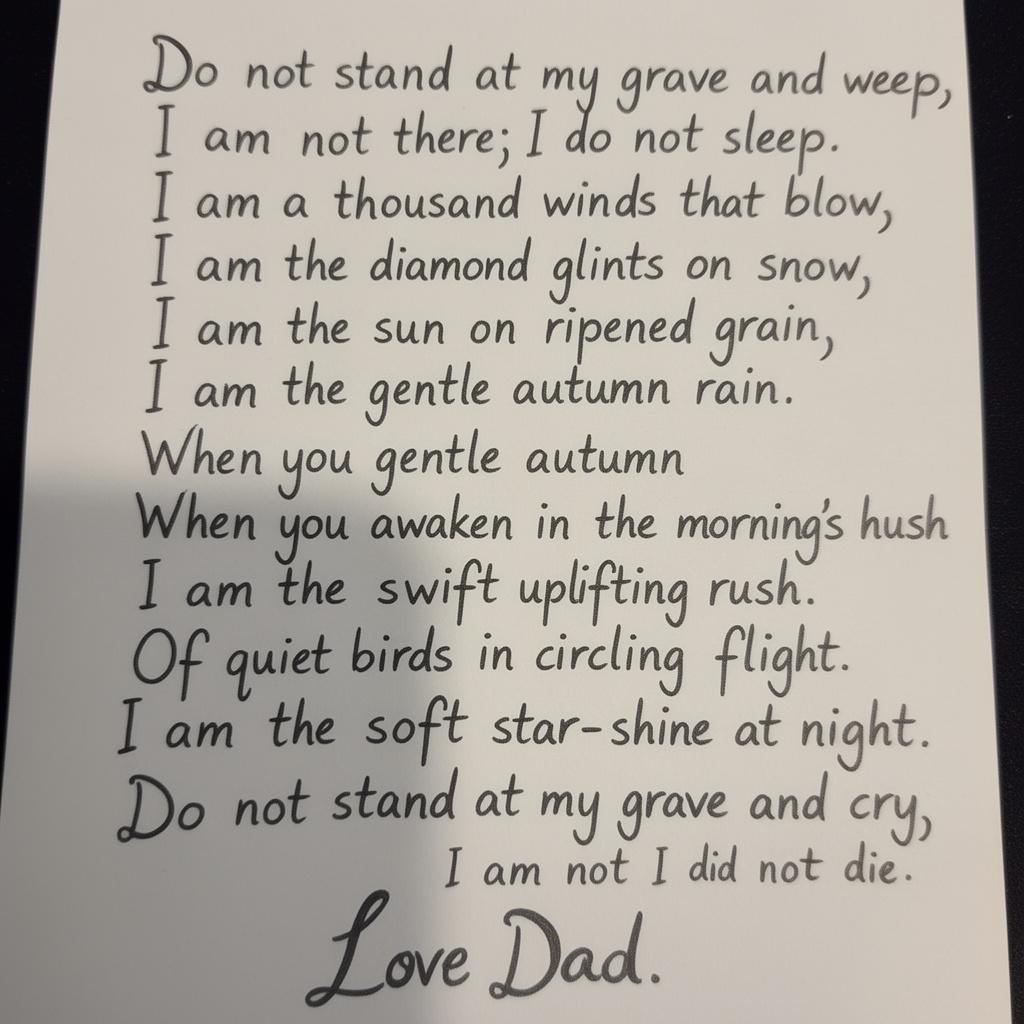 Do not stand at my grave and weep,
I am not there; I do not sleep.
I am a thousand winds that blow,
I am the diamond glints on snow,
I am the sun on ripened grain,
I am the gentle autumn rain.
When you gentle autumn
When you awaken in the morning's hush
I am the swift uplifting rush.
Of quiet birds in circling flight.
I am the soft star-shine at night.
Do not stand at my grave and cry,
I am not I did not die.
Love Dad.